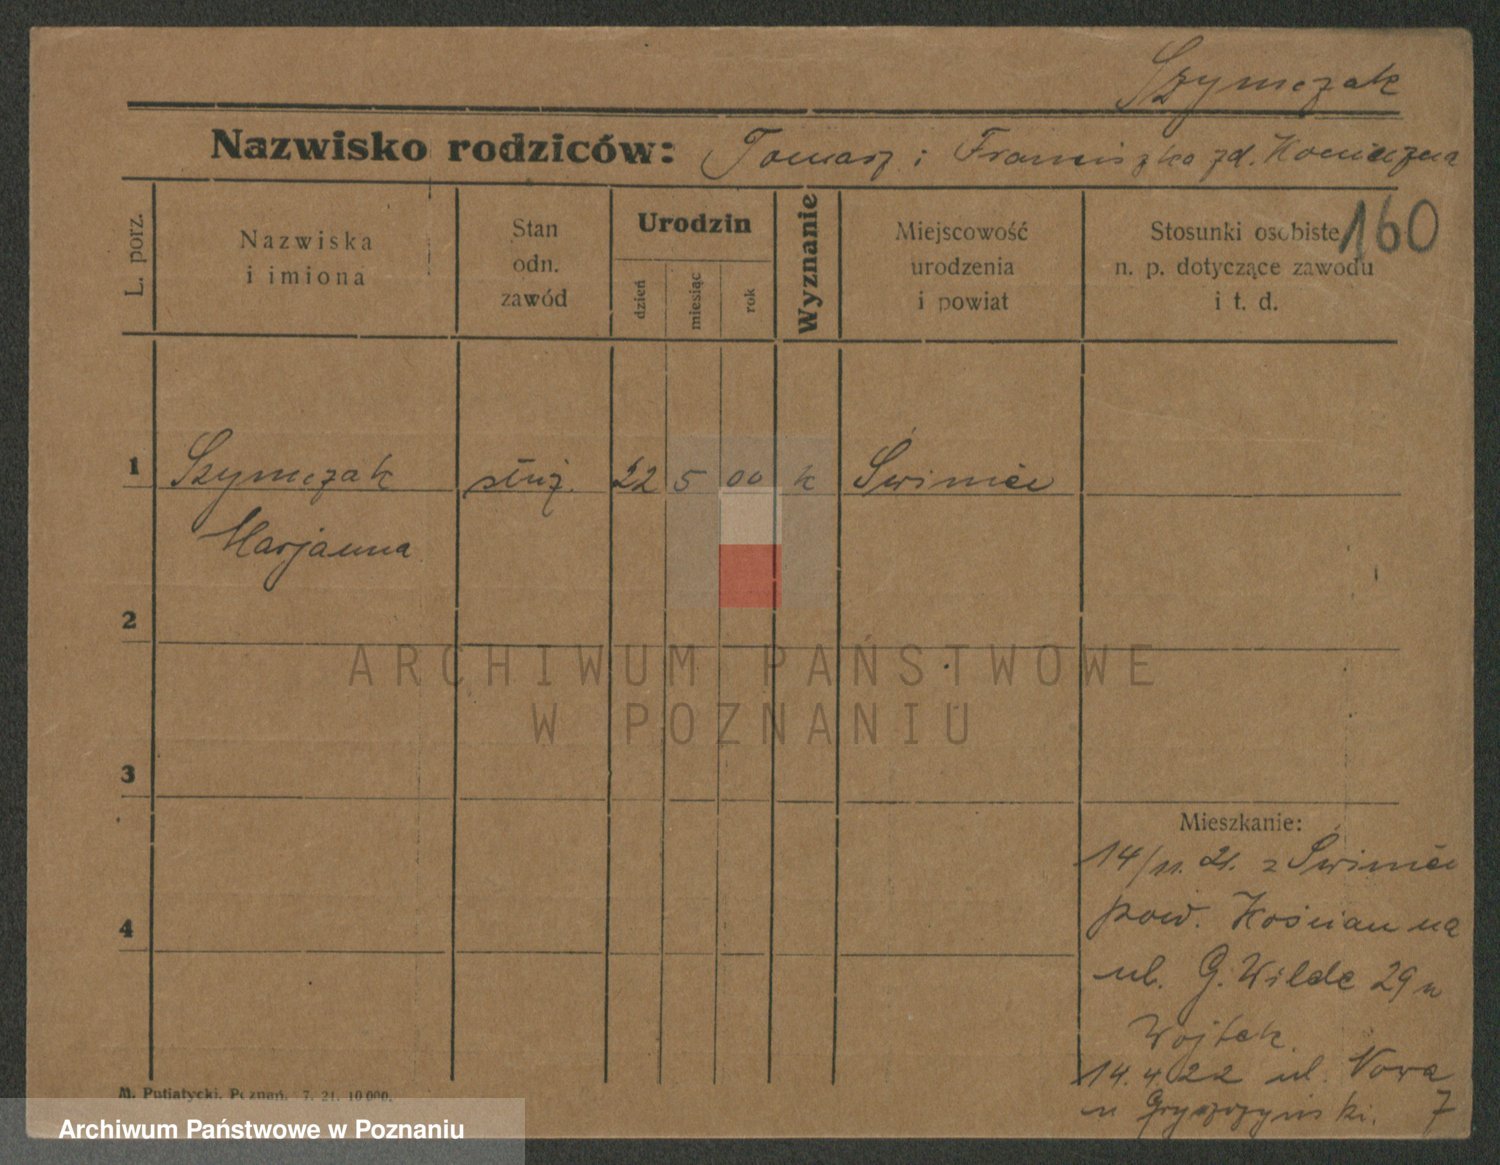 Szymczak
Nazwisko rodziców: Tomasz i Franciszka zd. Konieczna
160
L. porz.
Nazwiska
i imiona
Stan
odn.
zawód
Urodzin
dzień
miesiąc
rok
Wyznanie
Miejscowość
urodzenia
i powiat
Stosunki osobiste
n. p. dotyczące zawodu
i t. d.
1
Szymczak
służ.
22
5
00
k
Świniec
Marjanna
2
ARCHIWUM PAŃSTWOWE
W POZNANIU
3
4
Mieszkanie:
14/11. 21. z Świniec
pow. Kościan na
ul. G. Wilde 29 u
Wojtek.
14.4.22 ul. Nowa
7
u
M. Putiatycki, Poznań. 7. 21. 10 000.
Archiwum Państwowe w Poznaniu